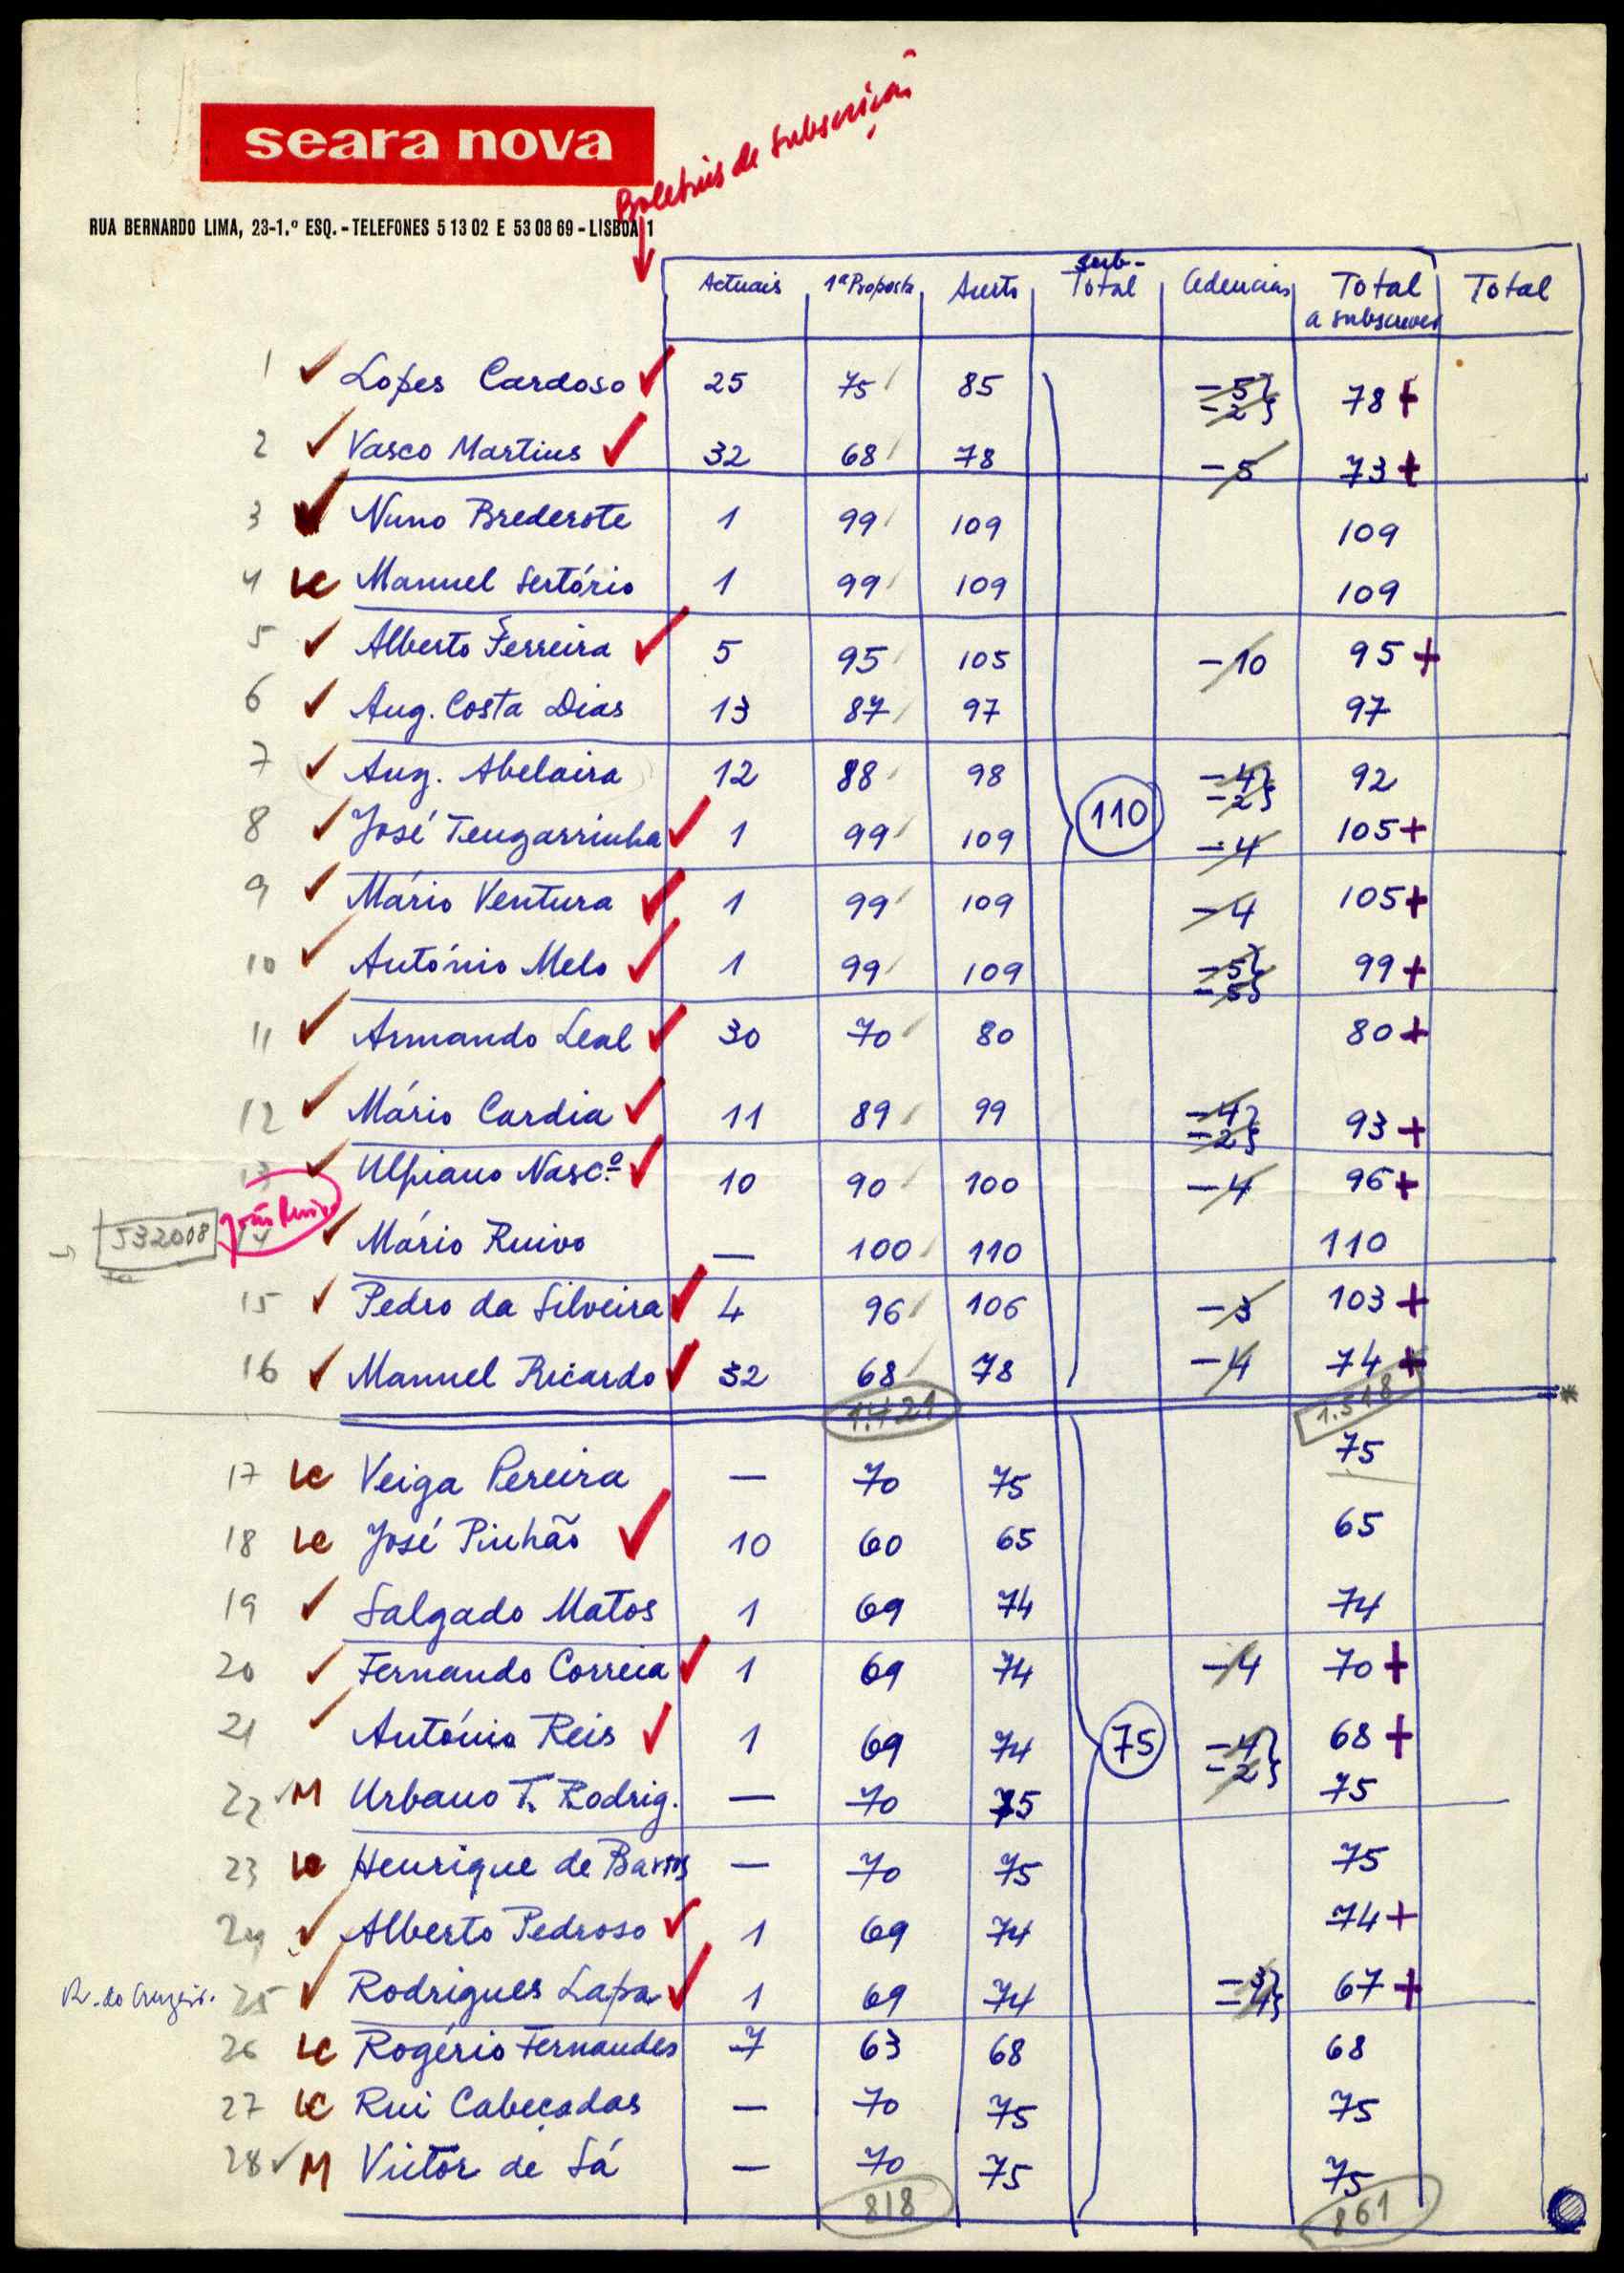 seara nova
Boletins de Subscrição
RUA BERNARDO LIMA, 23-1.º ESQ. - TELEFONES 5 13 02 E 53 08 69 - LISBOA 1
Actuais 1ª Proposta Acerto Sub-Total Cedencias Total a subscrever Total
1 Lopes Cardoso 25 75 85 -5 -2 78 +
2 Vasco Martins 32 68 78 -5 73 +
3 Nuno Brederote 1 99 109 109
4 LC Manuel Sertório 1 99 109 109
5 Alberto Ferreira 5 95 105 -10 95 +
6 Aug. Costa Dias 13 87 97 97
7 Aug. Abelaira 12 88 98 -4 -2 92
110
8 José Tengarrinha 1 99 109 -4 105 +
9 Mário Ventura 1 99 109 -4 105 +
10 António Melo 1 99 109 -5 -5 99 +
11 Armando Leal 30 70 80 80 +
12 Mário Cardia 11 89 99 -4 -2 93 +
13 Ulpiano Nasc.º 10 90 100 -4 96 +
532008 14 Mário Ruivo — 100 110 110
15 Pedro da Silveira 4 96 106 -3 103 +
16 Manuel Ricardo 32 68 78 -4 74 +
1.421 1.518
17 LC Veiga Pereira — 70 75 75
18 LC José Pinhão 10 60 65 65
19 Salgado Matos 1 69 74 74
20 Fernando Correia 1 69 74 -4 70 +
21 António Reis 1 69 74 75 -4 -2 68 +
22 M Urbano T. Rodrig. — 70 75 75
23 LC Henrique de Barros — 70 75 75
24 Alberto Pedroso 1 69 74 74 +
R. do Cruzeiro. 25 Rodrigues Lapa 1 69 74 -3 -4 67 +
26 LC Rogério Fernandes 7 63 68 68
27 LC Rui Cabeçadas — 70 75 75
28 M Victor de Sá — 70 75 75
818 861